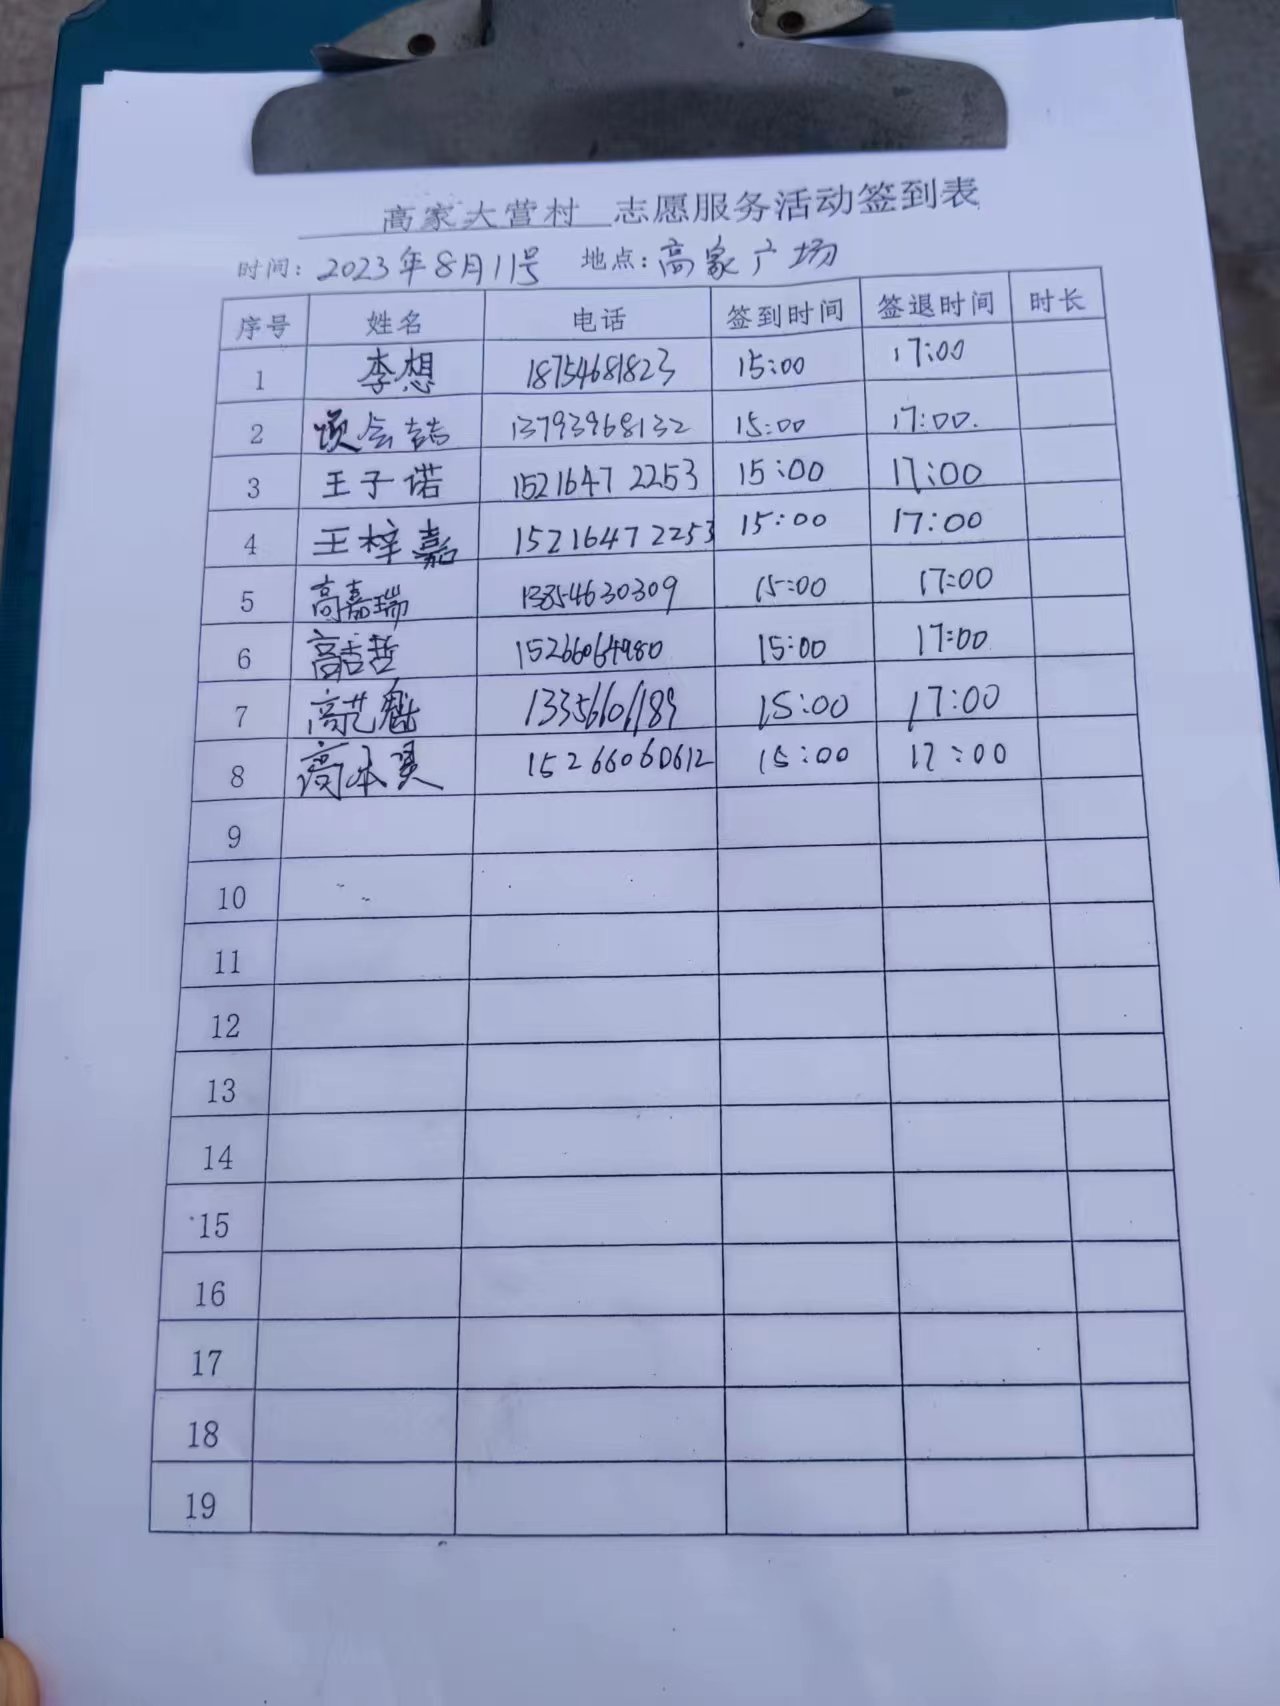 高家大营村 志愿服务活动签到表
时间: 2023年8月11号 地点: 高家广场
序号 姓名 电话 签到时间 签退时间 时长
1 李想 18754681823 15:00 17:00
2 13793968132 15:00 17:00.
3 王子诺 15216472253 15:00 17:00
4 王梓嘉 15216472253 15:00 17:00
5 高嘉瑞 13854630309 15:00 17:00
6 15266064980 15:00 17:00
7 高艺魁 13356601189 15:00 17:00
8 15266060612 15:00 17:00
9
10
11
12
13
14
15
16
17
18
19